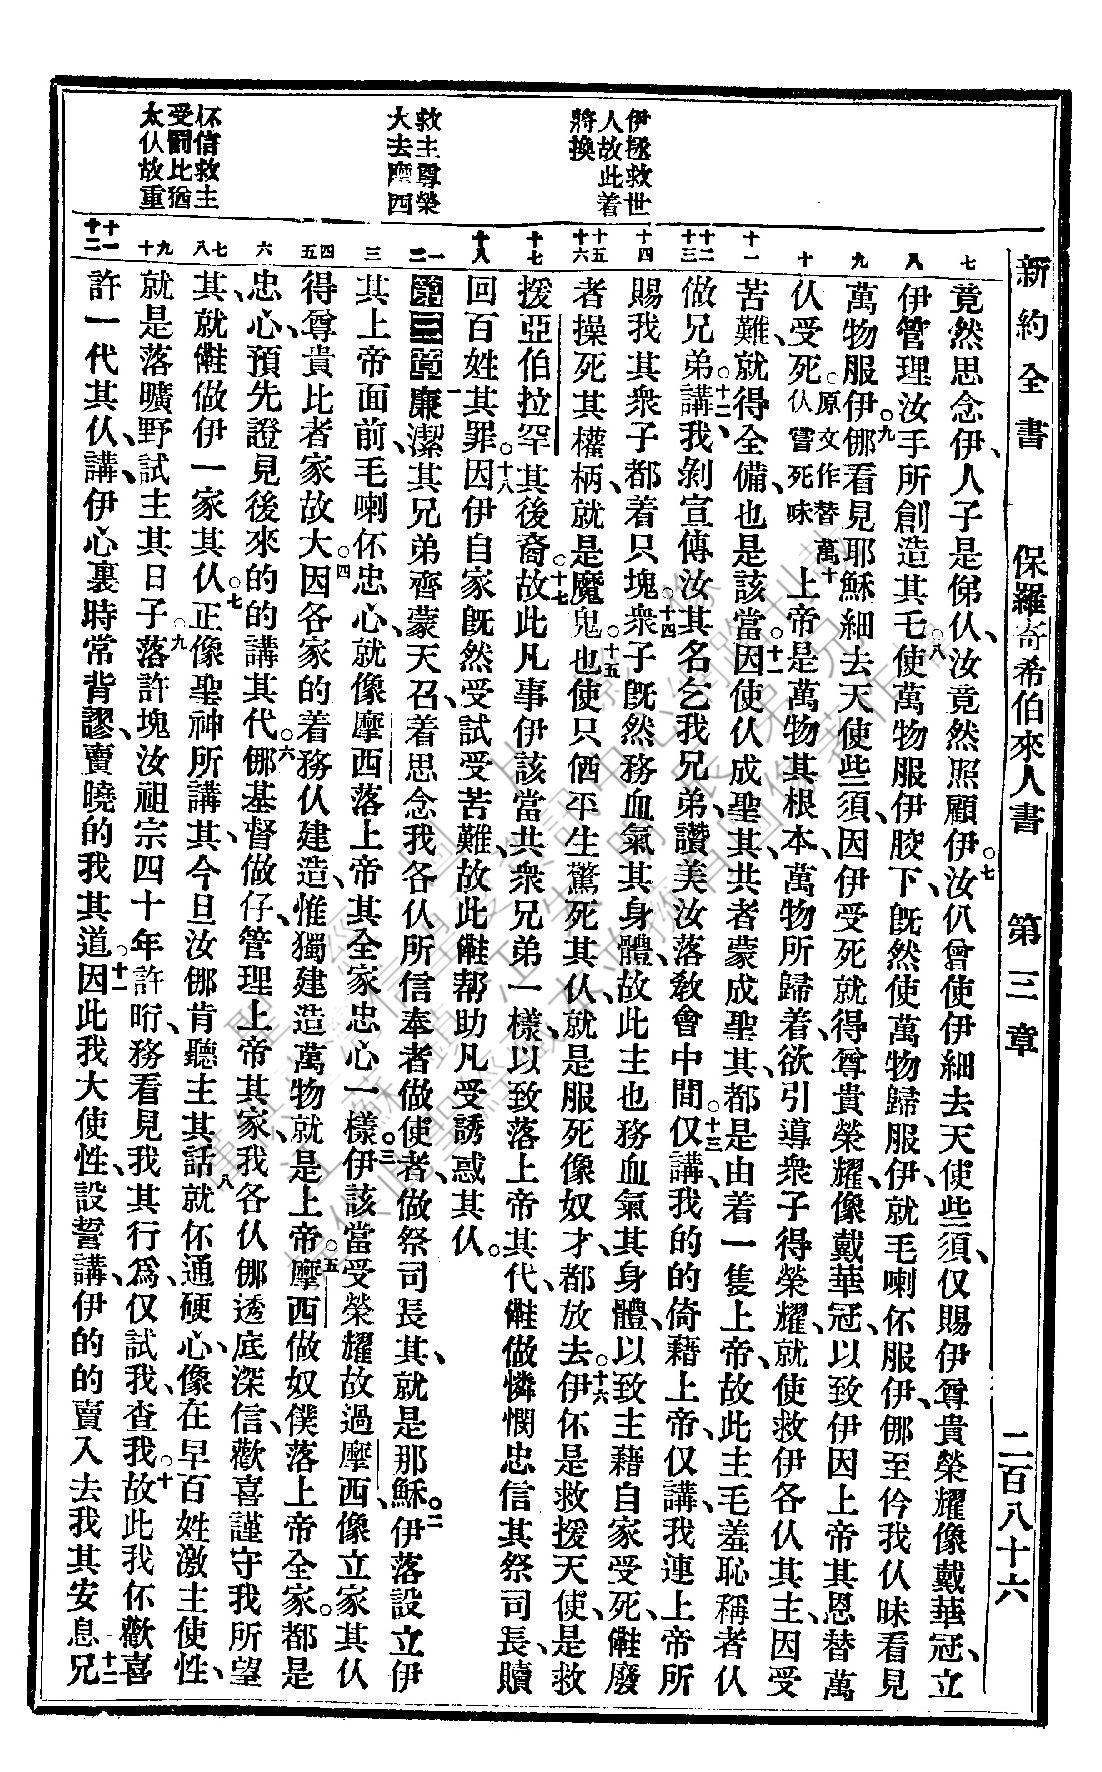 新約全書 保羅寄希伯來人書 第三章 二百八十六
伊拯救世
人故此着
將換
救主尊榮
大去摩西
伓信救主
受罰比猶
太仫故重
七
八
九
十
十一
十二 十三
十四
十五 十六
十七
十八
一 二
三
四 五
六
七 八
九 十
十一 十二
竟然思念伊、人子是俤仫、汝竟然照顧伊。七汝仈曾使伊細去天使些須、仅賜伊尊貴榮耀像戴華冠、立
伊管理汝手所創造其乇。八使萬物服伊骹下、旣然使萬物歸服伊、就毛喇伓服伊、𠆧至仱我仫昧看見
萬物服伊。九𠆧看見耶穌細去天使些須、因伊受死就得尊貴榮耀、像戴華冠、以致伊因上帝其恩替萬
仫受死。原文作替萬仫嘗死味十上帝是萬物其根本、萬物所歸着、欲引導衆子得榮耀、就使救伊各仫其主、因受
苦難、就得全備、也是該當。十一因使仫成聖其、共者蒙成聖其、都是由着一隻上帝、故此主毛羞恥稱者仫
做兄弟。十二講、我剝宣傳汝其名乞我兄弟、讚美汝落敎會中間。十三仅講、我的的倚藉上帝、仅講、我連上帝所
賜我其衆子都着只塊。十四衆子旣然務血氣其身體、故此主也務血氣其身體、以致主藉自家受死、㑚廢
者操死其權柄、就是魔鬼。十五也使只價平生驚死其仫、就是服死像奴才、都放去。十六伊伓是救援天使、是救
援亞伯拉罕其後裔。十七故此凡事伊該當共衆兄弟一樣、以致落上帝其代、㑚做憐憫忠信其祭司長、贖
回百姓其罪。十八因伊自家旣然受試受苦難、故此㑚幇助凡受誘惑其仫。
第三章 一廉潔其兄弟、齊蒙天召、着思念我各仫所信奉者做使者做祭司長其、就是耶穌。二伊落設立伊
其上帝面前、毛喇伓忠心、就像摩西落上帝其全家忠心一樣。三伊該當受榮耀故過摩西、像立家其仫
得尊貴比者家故大。四因各家的着務仫建造、惟獨建造萬物就是上帝。五摩西做奴僕落上帝全家、都是
忠心、預先證見後來的的講其代。六𠆧基督做仔、管理上帝其家、我各仫𠆧透底深信、歡喜謹守我所望
其、就㑚做伊一家其仫。七正像聖神所講其、今旦汝𠆧肯聽主其話。八就伓通硬心、像在早百姓激主使性、
就是落曠野試主其日子。九落許塊汝祖宗四十年許昕、務看見我其行爲、仅試我、查我。十故此我伓歡喜
許一代其仫、講、伊心裏時常背謬、賣曉的我其道。十一因此我大使性、設誓講、伊的的賣入去我其安息。十二兄